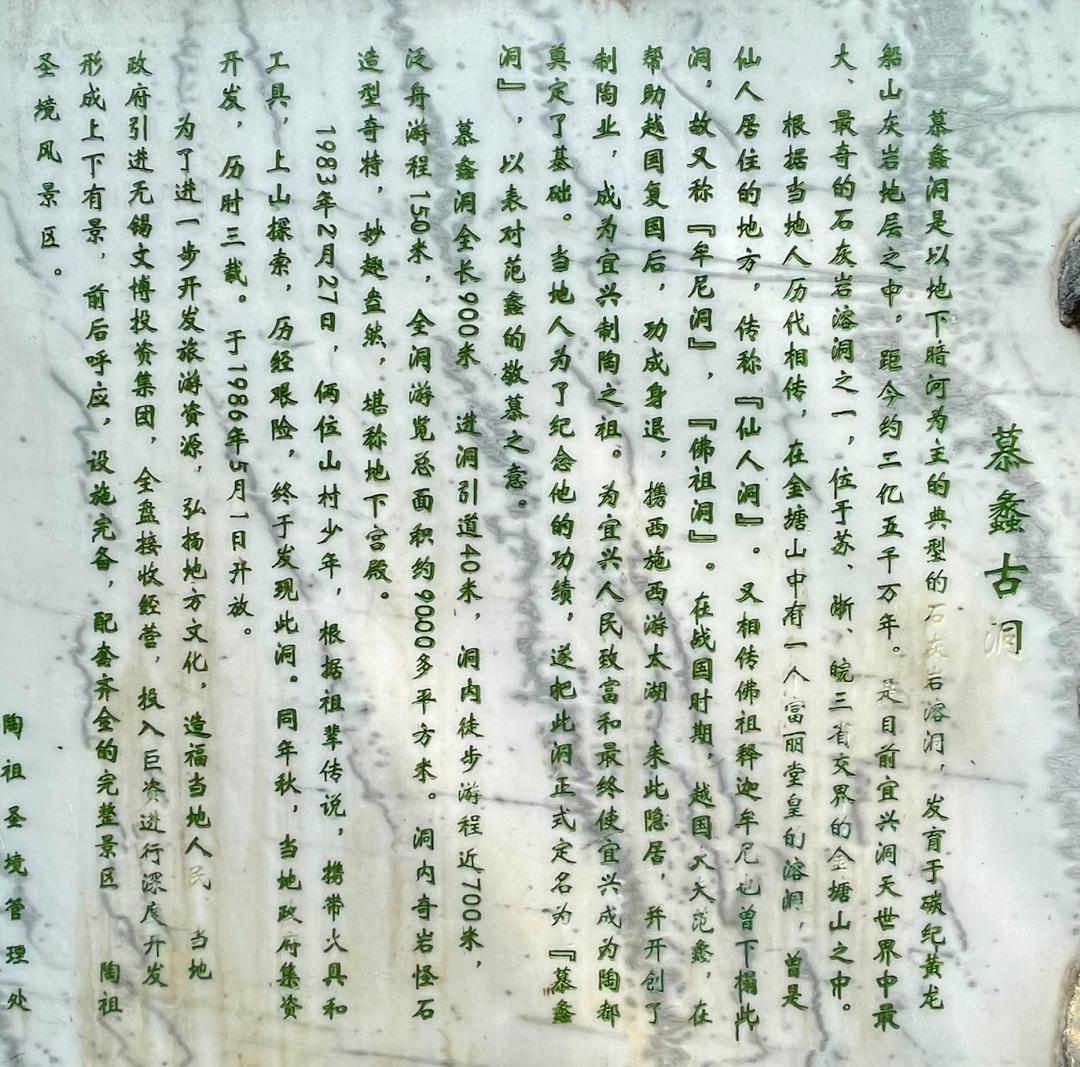 慕蠡古洞
慕蠡洞是以地下暗河为主的典型的石灰岩溶洞，发育于碳纪黄龙
船山灰岩地层之中，距今约二亿五千万年。是目前宜兴洞天世界中最
大、最奇的石灰岩溶洞之一，位于苏、浙、皖三省交界的金塘山之中。
根据当地人历代相传，在金塘山中有一个富丽堂皇的溶洞，曾是
仙人居住的地方，传称『仙人洞』。又相传佛祖释迦牟尼也曾下榻此
洞，故又称『牟尼洞』，『佛祖洞』。在战国时期，越国大夫范蠡，在
帮助越国复国后，功成身退，携西施西游太湖 来此隐居，并开创了
制陶业，成为宜兴制陶之祖。为宜兴人民致富和最终使宜兴成为陶都
奠定了基础。当地人为了纪念他的功绩，遂把此洞正式定名为『慕蠡
洞』，以表对范蠡的敬慕之意。
慕蠡洞全长900米 进洞引道40米，洞内徒步游程近700米，
泛舟游程150米，全洞游览总面积约9000多平方米。洞内奇岩怪石
造型奇特，妙趣盎然，堪称地下宫殿。
1983年2月27日，俩位山村少年，根据祖辈传说，携带火具和
工具，上山探索，历经艰险，终于发现此洞。同年秋，当地政府集资
开发，历时三载。于1986年5月1日开放。
为了进一步开发旅游资源，弘扬地方文化，造福当地人民 当地
政府引进无锡文博投资集团，全盘接收经营，投入巨资进行深度开发
形成上下有景，前后呼应，设施完备，配套齐全的完整景区 陶祖
圣境风景区。
陶祖圣境管理处